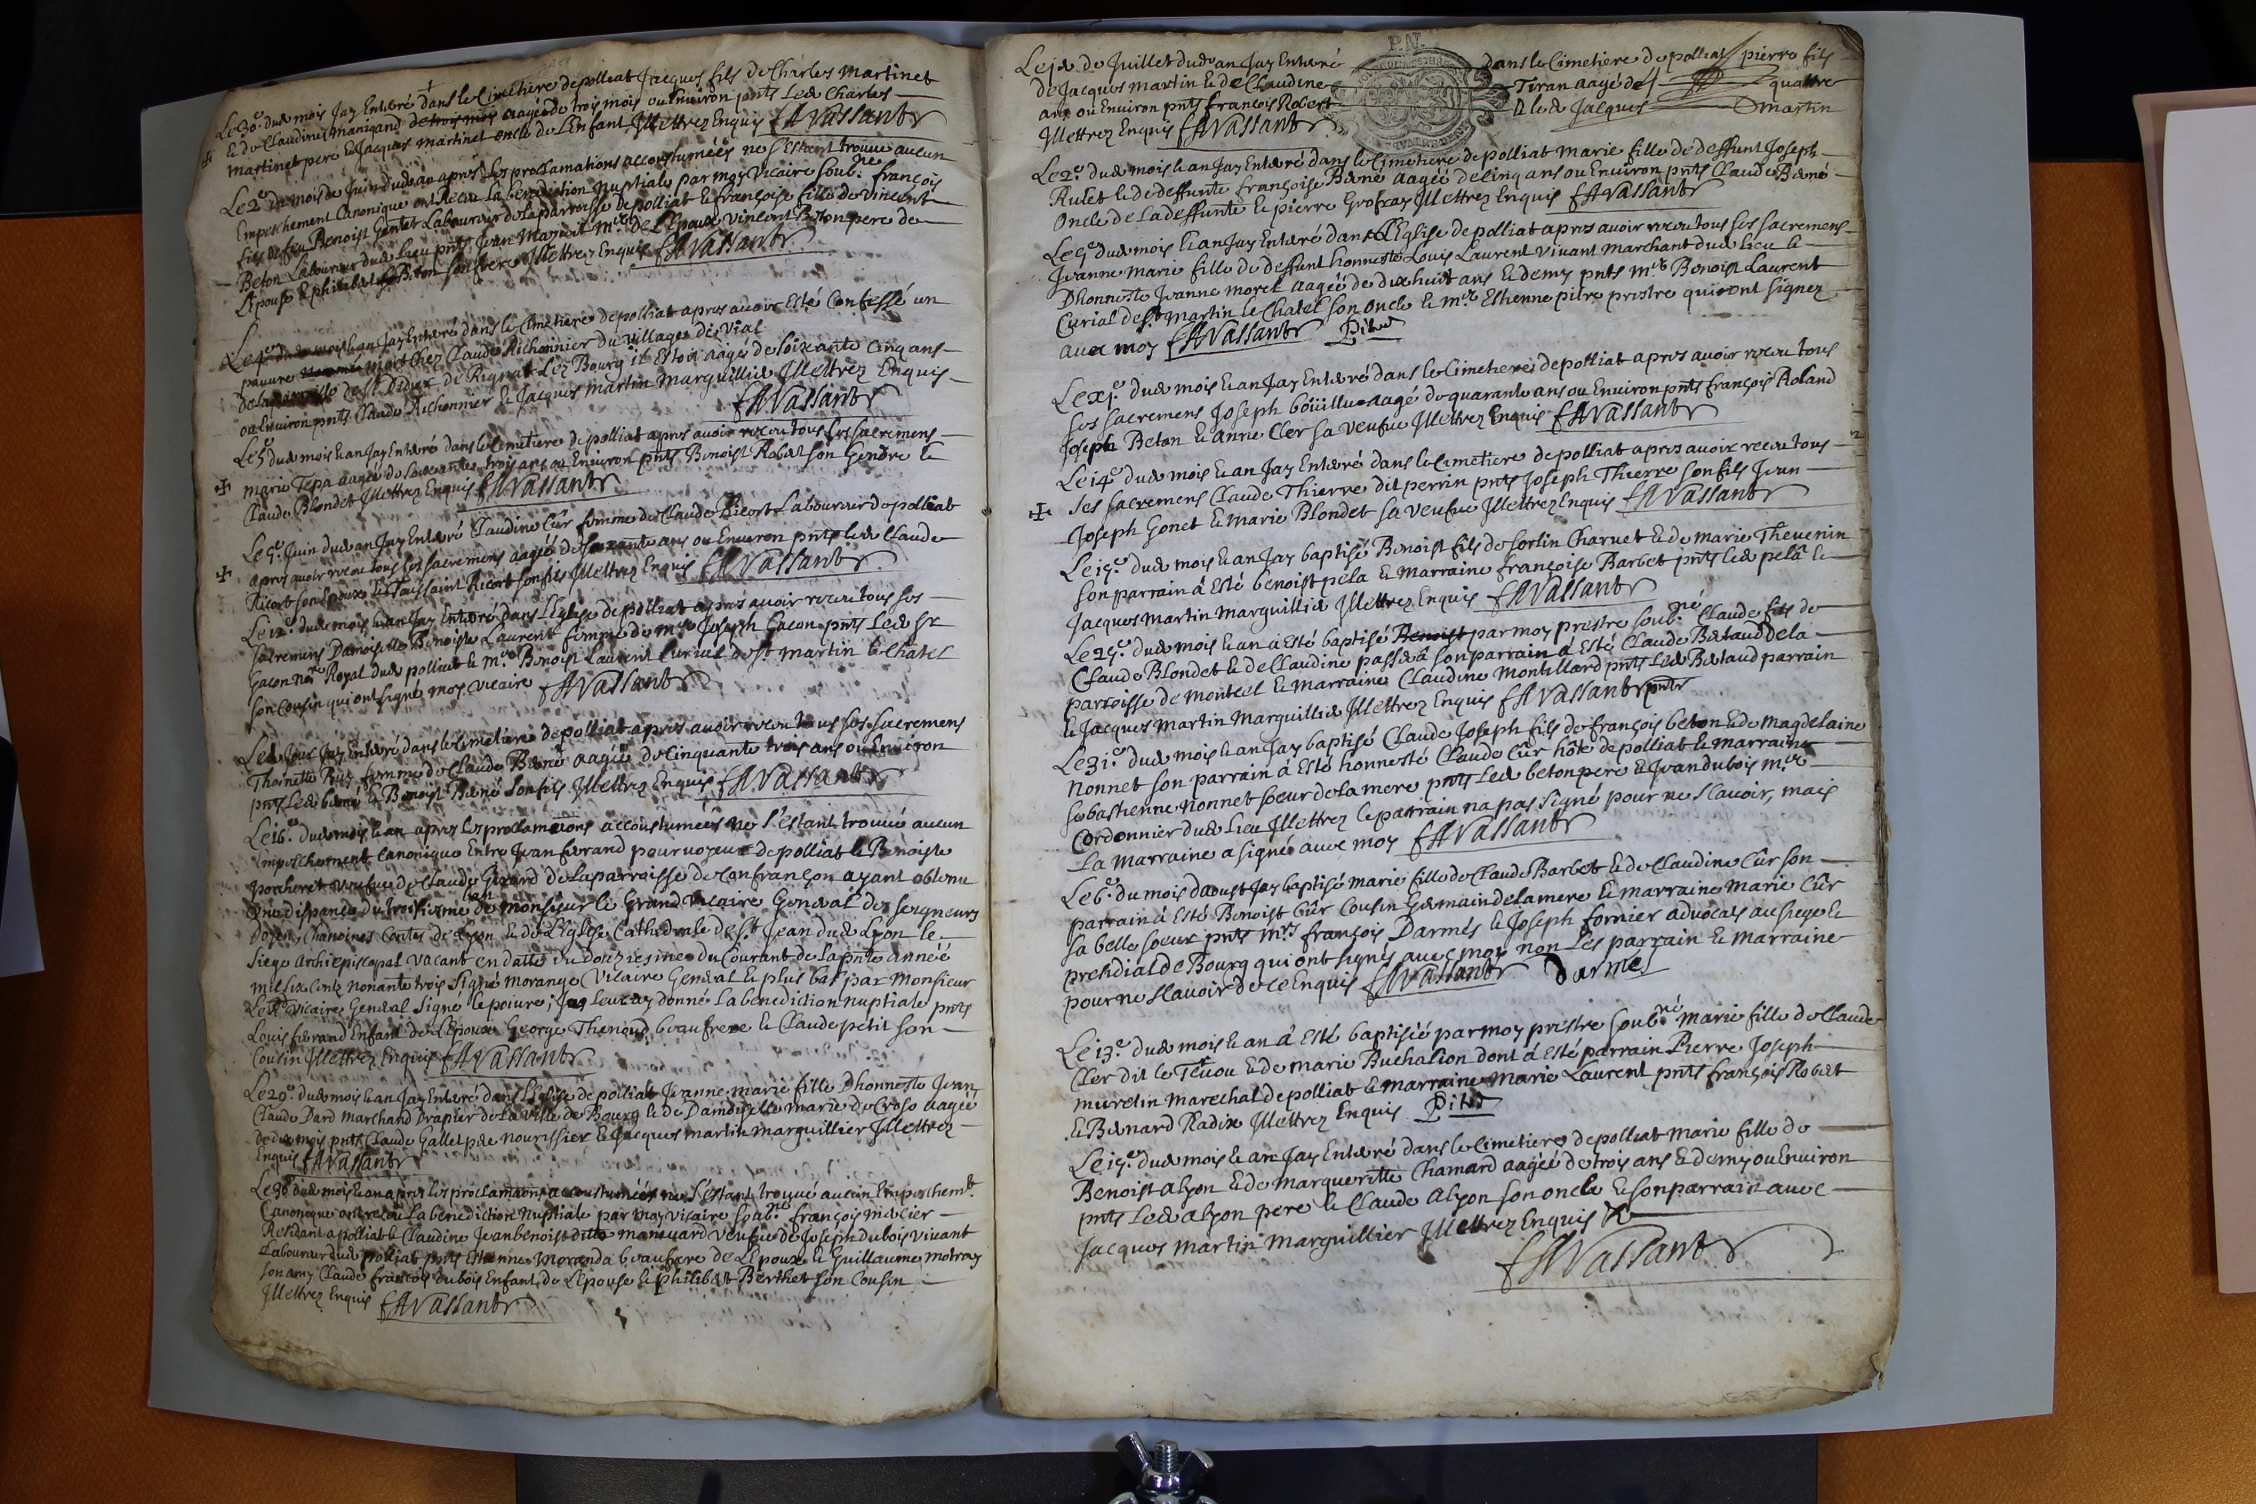 Le 30.e dud mois Jay Enterré dans le Cimetiere de polliat Jacques fils de Charles Martinet
& de Claudine Manigand aagé de trois mois ou Environ pnts Led Charles
martinet pere & Jacques martinet oncle de L'Enfant Illettrez Enquis fAVassant
Le 2.e du mois de Juin dud an apres Les proclamations accoustumées ne s'estant trouué aucun
Empeschement Canonique ont Reçeu La benediction nuptiale par moy Vicaire soub.né françois
fils de feu Benoist Gontet Laboureur de la parroisse de polliat & françoise fille de Vincent
Beton Laboureur dud Lieu pnts Jean m.e de L'Epoux Vincent Beton pere de
L'Epouse & philibert Beton son frere Illettrez Enquis fAVassant
Le 4.e dud mois & an Jay Enterré dans le Cimetiere de polliat apres auoir Esté Confessé un
pauure mort chez Claude Richonnier du village de Vial
de la parroisse de St Didier de Rignat Lez Bourg il Estoit aagé de soixante Cinq ans
ou Environ pnts Claude Richonnier & Jacques martin Marguillier Illettrez Enquis
fAVassant
Le 5.e dud mois & an Jay Enterré dans le Cimetiere de polliat apres auoir receu tous ses sacremens
marie Tepa aagée de soixante trois ans ou Environ pnts Benoist Robet son Gendre &
Claude Blondet Illettrez Enquis fAVassant
Le 9.e Juin dud an Jay Enterré Claudine Cûr femme de Claude Ricort Laboureur de polliat
apres auoir receu tous ses sacremens aagée de ans ou Environ pnts led Claude
Ricort son Epoux & Toussaint Ricort son fils Illettrez Enquis fAVassant
Le 12.e dud mois & an Jay Enterré dans L'Eglise de polliat apres auoir receu tous ses
sacremens Damoiselle Benoiste Laurent femme de m.re Joseph Gacon pnts Led Sr
Gacon n.re Royal dud polliat & m.re Benoist Laurent Curial de St martin le Chatel
son Cousin qui ont signé moy vicaire fAVassant
Led Jour Jay Enterré dans le Cimetiere de polliat apres auoir receu tous ses sacremens
Thoinette femme de Claude Bené aagée de Cinquante trois ans ou Environ
pnts Led bené & Benoist Bené son fils Illettrez Enquis fAVassant
Le 16.e dud mois & an apres les proclamations accoustumées ne s'estant trouué aucun
Empeschement Canonique Entre Jean ferrand pouruoyeur de polliat & Benoiste
porcheret veufue de Claude Girard de la parroisse de Confrançon ayant obtenu
une dispance du troisiesme ban de monsieur le Grand vicaire General des seigneurs
Doyen Chanoines Contes de Lyon & de L'Eglise Cathedrale de St Jean dud Lyon le
siege Archiepiscopal vacant en datte du douziesme du Courant de la pnte année
mil six Cents nonante trois signé morange Vicaire General & plus bas par Monsieur
Led vicaire General signé le poiure; Jay leur ay donné La benediction nuptiale pnts
Louis ferrand Enfant de L'Epoux George Thenoud beaufrere & Claude petit son
Cousin Illettrez Enquis fAVassant
Le 20.e dud mois & an Jay Enterré dans L'Eglise de polliat Jeanne marie fille D'honneste Jean
Claude Dard Marchand Drapier de La ville de Bourg & de Damoiselle marie de Croso aagée
de dix mois pnts Claude Gallet pere nourissier & Jacques martin marguillier Illettrez
Enquis fAVassant
Le 30.e dud mois & an apres les proclamaons accoustumées ne s'estant trouué aucun Empeschem.t
Canonique ont receu La benediction nuptiale par moy vicaire soub.né françois mercier
Residant a polliat & Claudine Jeanbenoist ditte manguard veufue de Joseph Dubois viuant
Laboureur dud polliat pnts Etienne Moranda beaufrere de L'Epoux & Guillaume motray
son amy Claude françois dubois Enfant de L'Epouse & philibert Berthet son Cousin
Illettrez Enquis fAVassant
P.N.
Le 1.er de Juillet dud an Jay Enterré dans le Cimetiere de polliat pierre fils
de Jacques martin & de Claudine Tiran aagé de quattre
ans ou Environ pnts François Robert & led Jacques martin
Illettrez Enquis fAVassant
Le 2.e dud mois & an Jay Enterré dans le Cimetiere de polliat Marie fille de deffunt Joseph
Rulet & de deffunte françoise Bené aagée de Cinq ans ou Environ pnts Claude Bené
Oncle de La deffunte & pierre Grofray Illettrez Enquis fAVassant
Le 9.e dud mois & an Jay Enterré dans L'Eglise de polliat apres auoir receu tous ses sacremens
Jeanne Marie fille de deffunt honneste Louis Laurent viuant Marchant dud lieu &
D'honneste Jeanne morel aagée de dix huit ans & demy pnts m.re Benoist Laurent
Curial de St Martin le Chatel son oncle & m.re Estienne pitre prestre qui ont signez
auec moy fAVassant Pitre
Le xj.e dud mois & an Jay Enterré dans le Cimetiere de polliat apres auoir receu tous
ses sacremens Joseph boüillu aagé de quarante ans ou Environ pnts françois Roland
Joseph Beton & Anne Cler sa veufue Illettrez Enquis fAVassant
Le 14.e dud mois & an Jay Enterré dans le Cimetiere de polliat apres auoir receu tous
ses sacremens Claude Thierre dit perrin pnts Joseph Thierre son fils Jean
Joseph Gonet & Marie Blondet sa veufue Illettrez Enquis fAVassant
Le 15.e dud mois & an Jay baptisé Benoist fils de sorlin Charuet & de marie Theuenin
son parrain à Esté benoist pela & Marraine françoise Barbet pnts led pelâ &
Jacques Martin Marguillier Illettrez Enquis fAVassant
Le 25.e dud mois & an à Esté baptisé Benoist par moy prestre soub.né Claude fils de
Claude Blondet & de Claudine passerâ son parrain à Esté Claude Bertaud de la
parroisse de Montcel & Marraine Claudine Montillard pnts led Bertaud parrain
& Jacques Martin Marguillier Illettrez Enquis fAVassant pnts
Le 31.e dud mois & an Jay baptisé Claude Joseph fils de françois beton & de Magdelaine
Nonnet son parrain à Esté honnesté Claude Cûr hôte de polliat & marraine
sebastienne Nonnet soeur de la mere pnts Led beton pere & Jean dubois m.e
Cordonnier dud Lieu Illettrez le parrain na pas signé pour ne sçauoir, mais
La Marraine a signé auec moy fAVassant
Le 6.e du mois d'aoust Jay baptisé Marie fille de Claude Barbet & de Claudine Cûr son
parrain à Esté Benoist Cûr Cousin Germain de la mere & marraine Marie Cûr
sa belle soeur pnts m.rs françois Darmés & Joseph fornier aduocats au siege &
presidial de Bourg qui ont signés auec moy non les parrain & Marraine
pour ne sçauoir de ce Enquis fAVassant Darmes
Le 13.e dud mois & an à Esté baptisée par moy prestre soub.né Marie fille de Claude
Cler dit le Teuou & de Marie Buchalion dont à Esté parrain Pierre Joseph
muretin Marechal de polliat & marraine Marie Laurent pnts françois Robert
& Bernard Radix Illettrez Enquis Pitre
Le 15.e dud mois & an Jay Enterré dans le Cimetiere de polliat Marie fille de
Benoist alyon & de Marguerite Chamard aagée de trois ans & demy ou Environ
pnts Led alyon pere & Claude alyon son oncle & son parrain auec
Jacques Martin Marguillier Illettrez Enquis
fAVassant